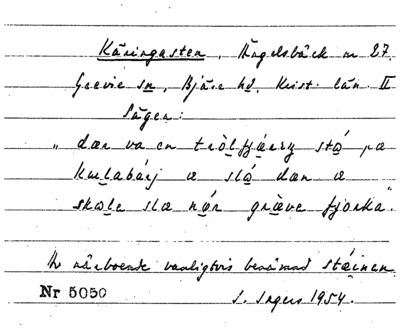 Käringasten, Ängelsbäck nr 27,
Grevie sn, Bjäre hd, Krist. län II
Sägen:
"dær va en trölfjǽriŋ stó̱ pæ
Kulabárj æ sló̱ dæn æ
skole slæ nér græve fjorka"
Av närboende vanligtvis benämnd stáinen.
Nr 5050
S. Ingers 1954.